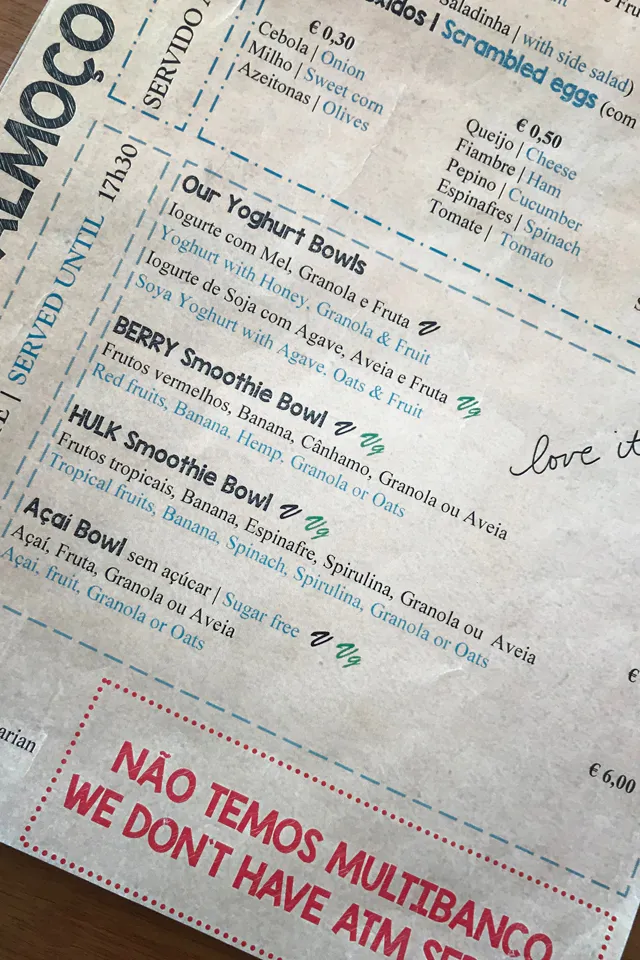 Saladinha | with side salad)
Scrambled eggs (com
€ 0,30
Cebola | Onion
Milho | Sweet corn
Azeitonas | Olives
€ 0,50
Queijo | Cheese
Fiambre | Ham
Pepino | Cucumber
Espinafres | Spinach
Tomate | Tomato
SERVIDO
SERVED UNTIL 17h30
Our Yoghurt Bowls
Iogurte com Mel, Granola e Fruta V
Yoghurt with Honey, Granola & Fruit
Iogurte de Soja com Agave, Aveia e Fruta Vg
Soya Yoghurt with Agave, Oats & Fruit
BERRY Smoothie Bowl V Vg
Frutos vermelhos, Banana, Cânhamo, Granola ou Aveia
Red fruits, Banana, Hemp, Granola or Oats
love it
HULK Smoothie Bowl V Vg
Frutos tropicais, Banana, Espinafre, Spirulina, Granola ou Aveia
Tropical fruits, Banana, Spinach, Spirulina, Granola or Oats
Açai Bowl sem açúcar | Sugar free V Vg
Açaí, Fruta, Granola ou Aveia
Açai, fruit, Granola or Oats
€
€ 6,00
arian
NÃO TEMOS MULTIBANCO
WE DON'T HAVE ATM